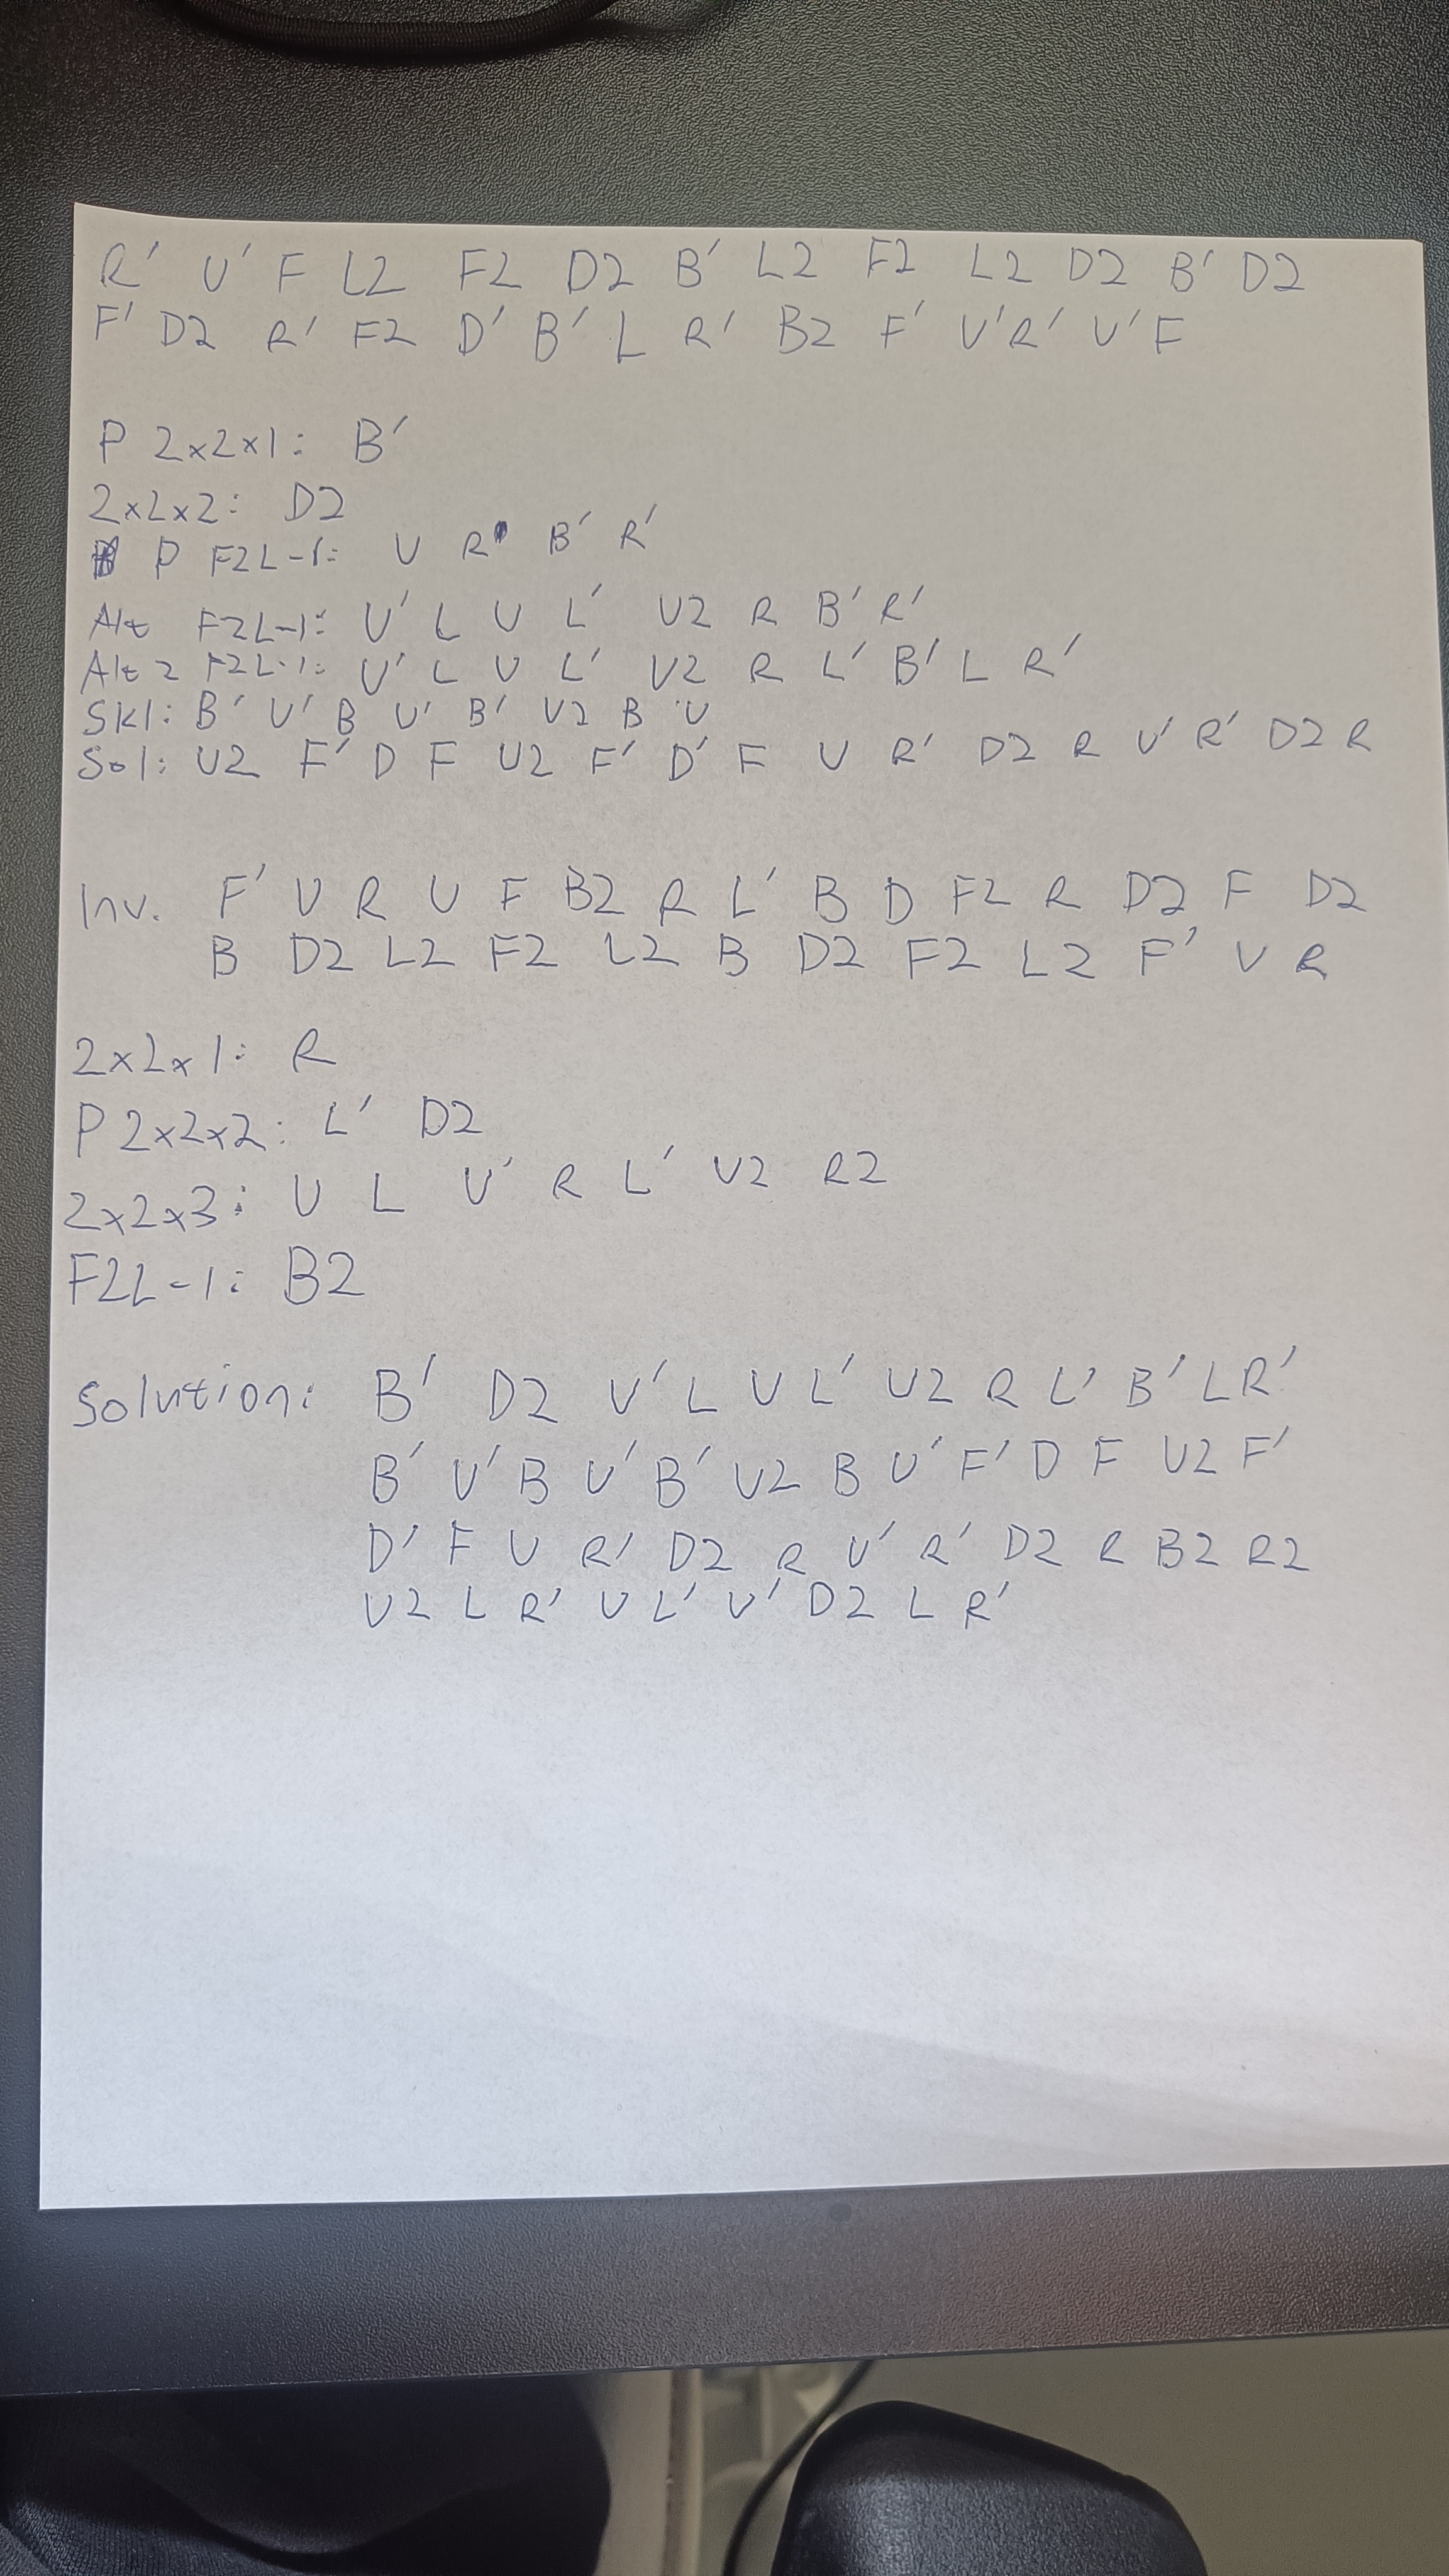 R' U' F L2 F2 D2 B' L2 F2 L2 D2 B' D2
F' D2 R' F2 D' B' L R' B2 F' U' R' U' F
P 2x2x1: B'
2x2x2: D2
P F2L-1: U R B' R'
Alt F2L-1: U' L U L' U2 R B' R'
Alt 2 F2L-1: U' L U L' U2 R L' B' L R'
Skl: B' U' B U' B' U2 B U
Sol: U2 F' D F U2 F' D' F U R' D2 R U' R' D2 R
Inv. F' U R U F B2 R L' B D F2 R D2 F D2
B D2 L2 F2 L2 B D2 F2 L2 F' U R
2x2x1: R
P 2x2x2: L' D2
2x2x3: U L U' R L' U2 R2
F2L-1: B2
Solution: B' D2 U' L U L' U2 R L' B' L R'
B' U' B U' B' U2 B U' F' D F U2 F'
D' F U R' D2 R U' R' D2 R B2 R2
U2 L R' U L' U' D2 L R'